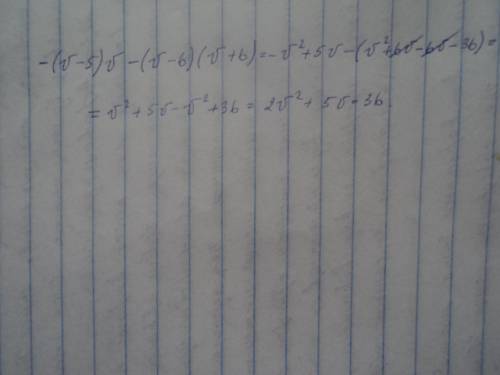 -(v-5)v-(v-6)(v+6)=-v²+5v-(v²+6v-6v-36)=
=v²+5v-v²+36=2v²+5v-36.